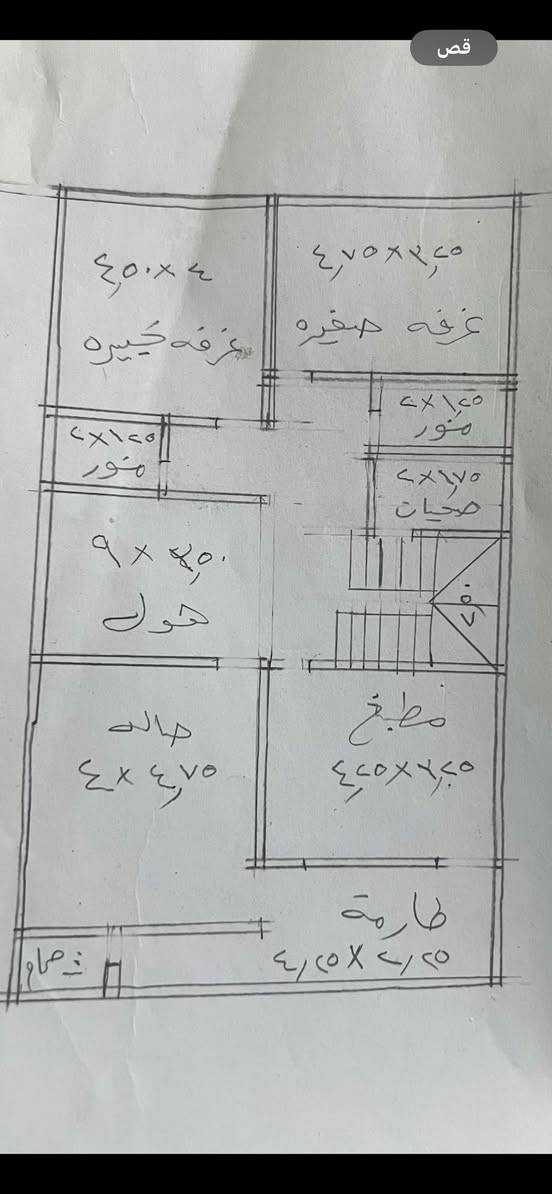 قص
٤,٧٥ X ٣,٢٥
غرفه صغيره
٤,٥٠ X ٤
غرفه كبيره
٢ X ١,٢٥
منور
٢ X ١,٢٥
منور
٢ X ١,٧٥
صحيات
٩ X ٣,٥٠
هول
مطبخ
٤,٢٥ X ٣,٢٥
صاله
٤ X ٤,٧٥
طارمة
٤,٢٥ X ٢,٢٥
حمام